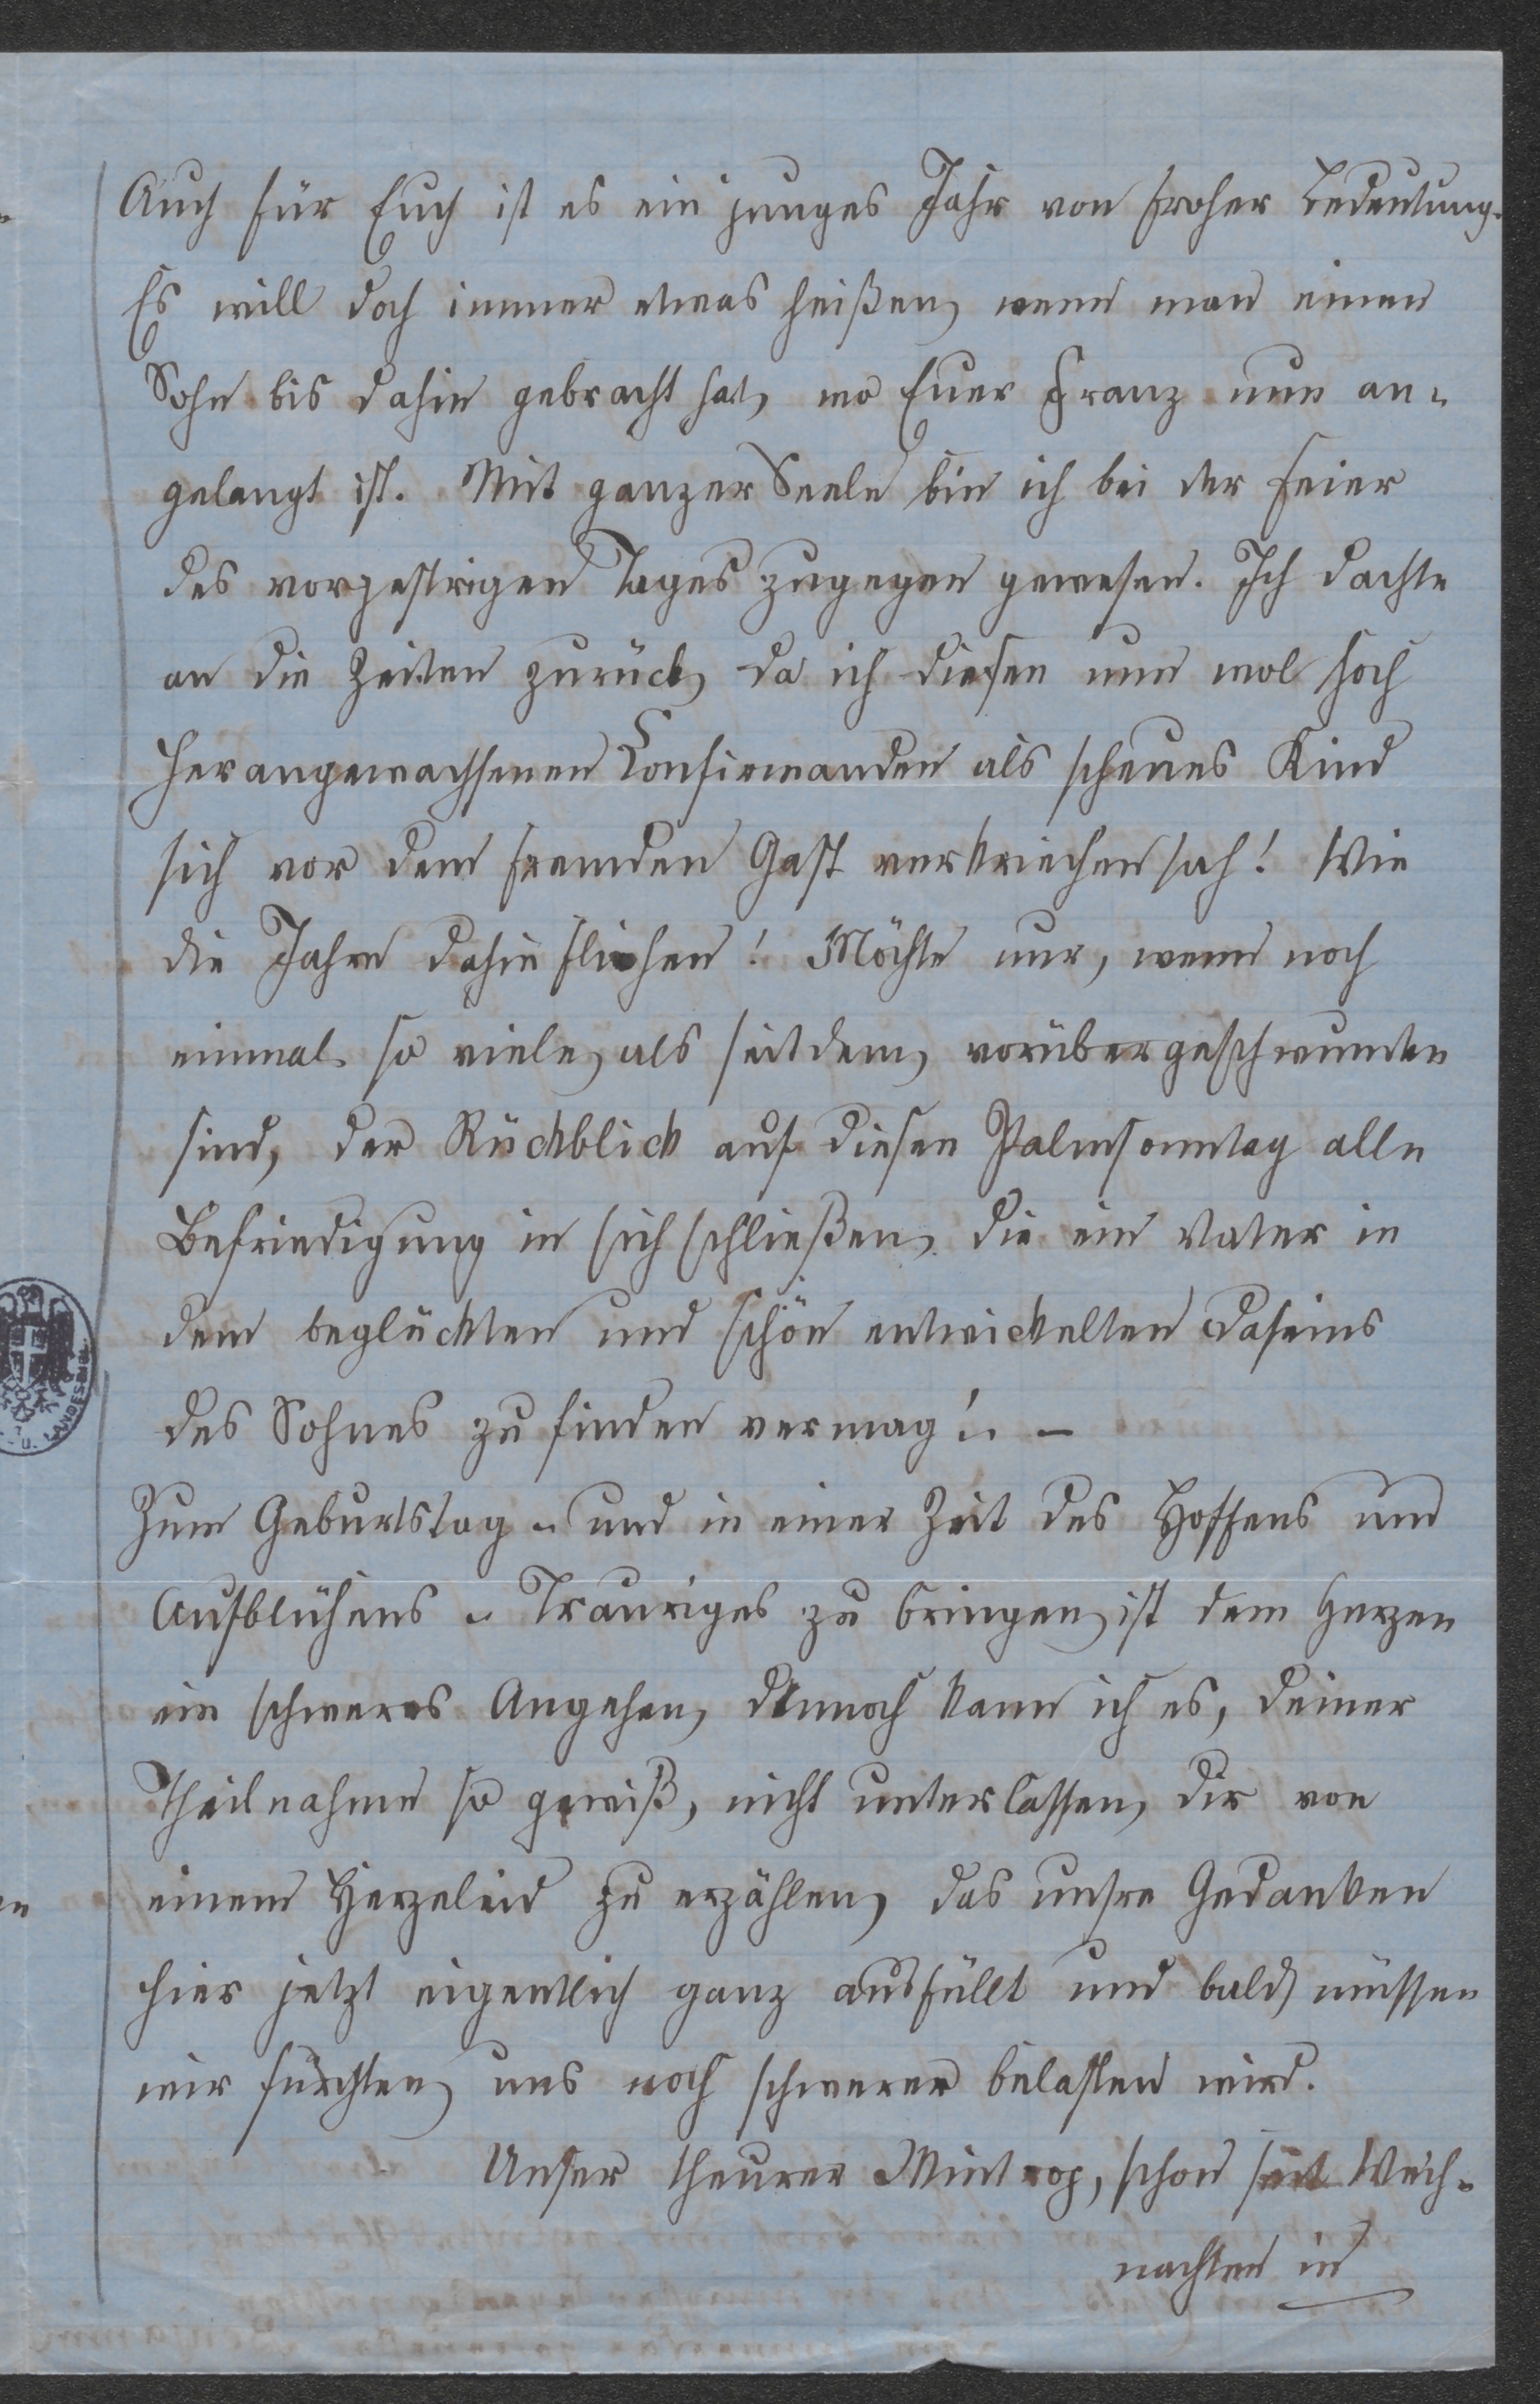 Auch für Euch ist es ein junges Jahr von froher Bedeutung.
Es will doch immer etwas heißen, wenn man einen
Sohn bis dahin gebracht hat, wo Euer Franz nun an-
gelangt ist. Mit ganzer Seele bin ich bei der Feier
des vorgestrigen Tages zugegen gewesen. Ich dachte
an die Zeiten zurück, da ich diesen nun wol hoch
herangewachsenen Confirmanden als scheues Kind
sich vor dem fremden Gast verkriechen sah! Wie
die Jahre dahin fliehen! Möchte nur, wenn noch
einmal so viele, als seitdem, vorübergeschwunden
sind, der Rückblick auf diesen Palmsonntag alle
Befriedigung in sich schließen, die ein Vater in
dem beglückten und schön entwickelten Daseins
des Sohnes zu finden vermag! –
Zum Geburtstag - und in einer Zeit des Hoffens und
Aufblühens - Trauriges zu bringen, ist dem Herzen
ein schweres Angehen, dennoch kann ich es, deiner
Theilnahme so gewiß, nicht unterlassen, dir von
einem Herzeleid zu erzählen, das unsre Gedanken
hier jetzt eigentlich ganz ausfüllt und bald, müssen
wir fürchten, uns noch schwerer belasten wird.
Unser theurer Mintrop, schon seit Weih-
nachten in